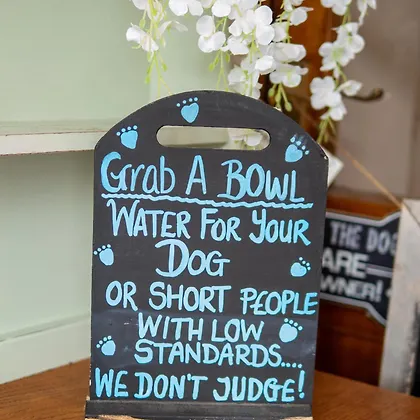 Grab A BOWL
WATER FOR YOUR
DOG
OR SHORT PEOPLE
WITH LOW
STANDARDS....
WE DON'T JUDGE!
THE DO
ARE
WNER!